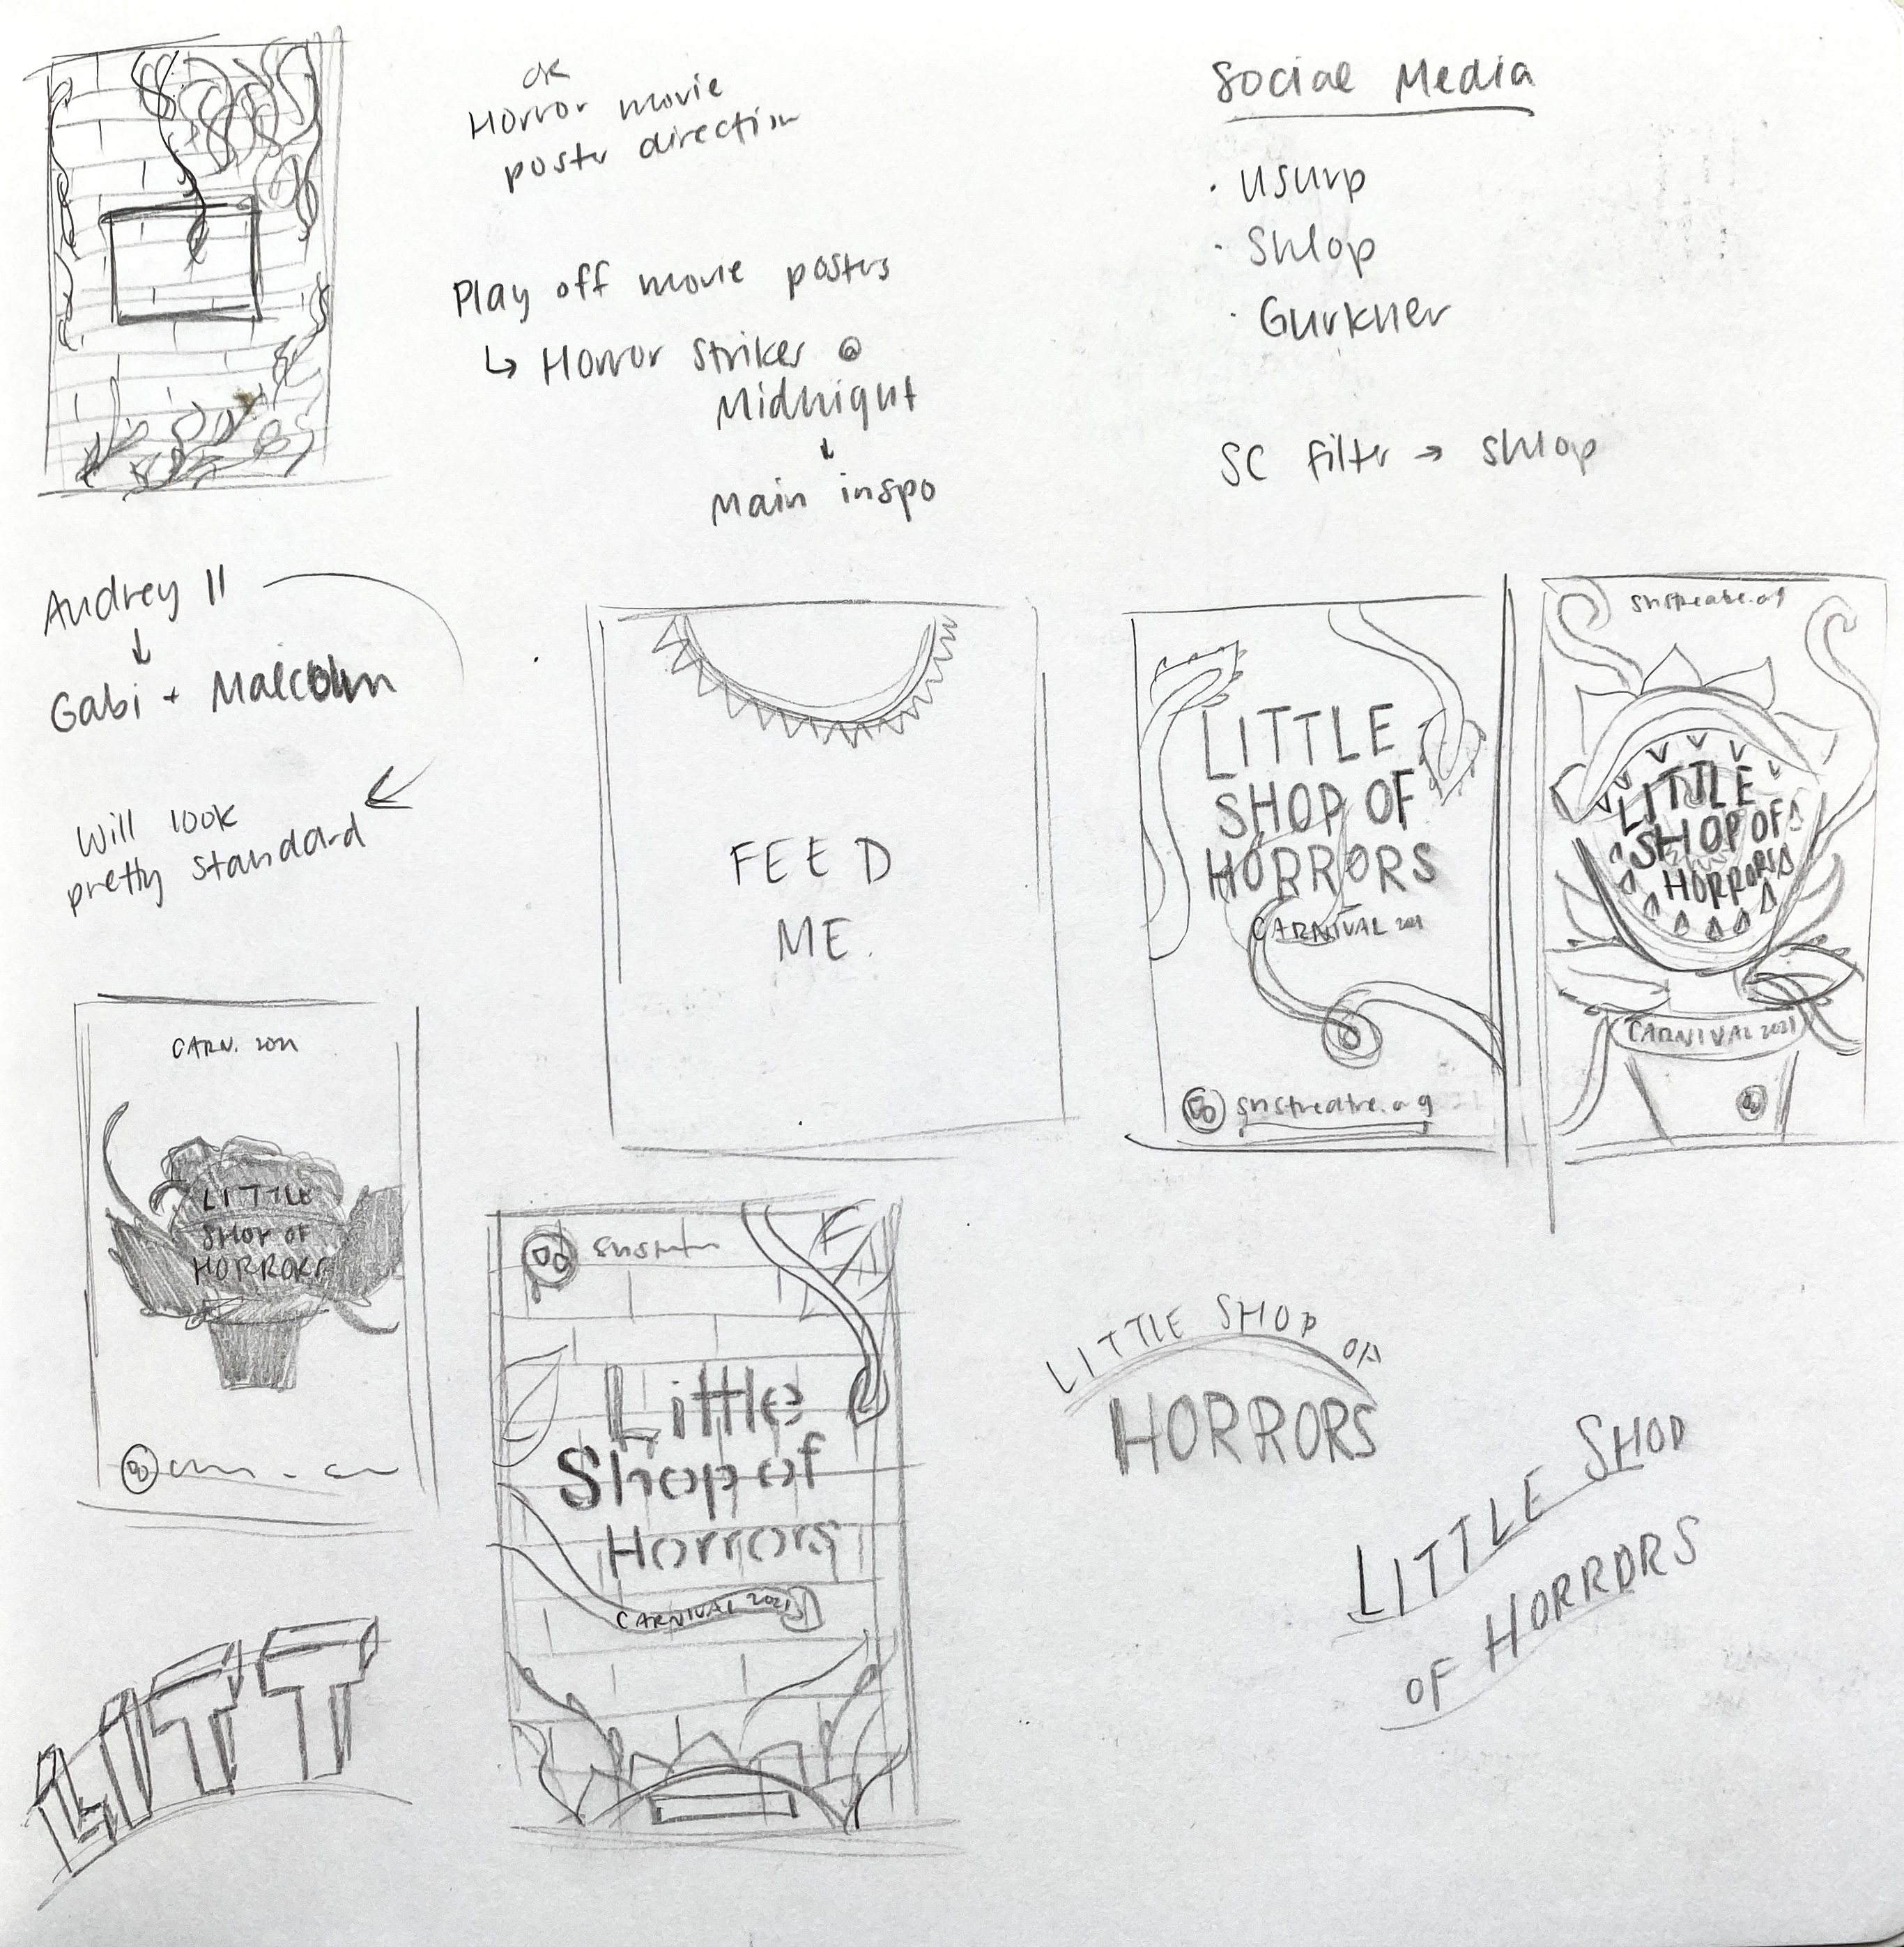 OK
Horror movie
poster direction
Play off movie posters
↳ Horror Striker @
Midnight
↓
Main inspo
Social Media
· usurp
· Shlop
· Gurkner
SC filter → shlop
Audrey II
↓
Gabi + Malcolm
Will look
pretty standard
FEED
ME.
LITTLE
SHOP OF
HORRORS
CARNIVAL 2021
snstheatre.og
LITTLE
SHOP OF
HORRORS
CARNIVAL 2021
CARN. 2021
LITTLE
SHOP OF
HORRORS
Little
Shop of
Horrors
CARNIVAL 2021
LITTLE SHOP OF
HORRORS
LITTLE SHOP
OF HORRORS
LITT